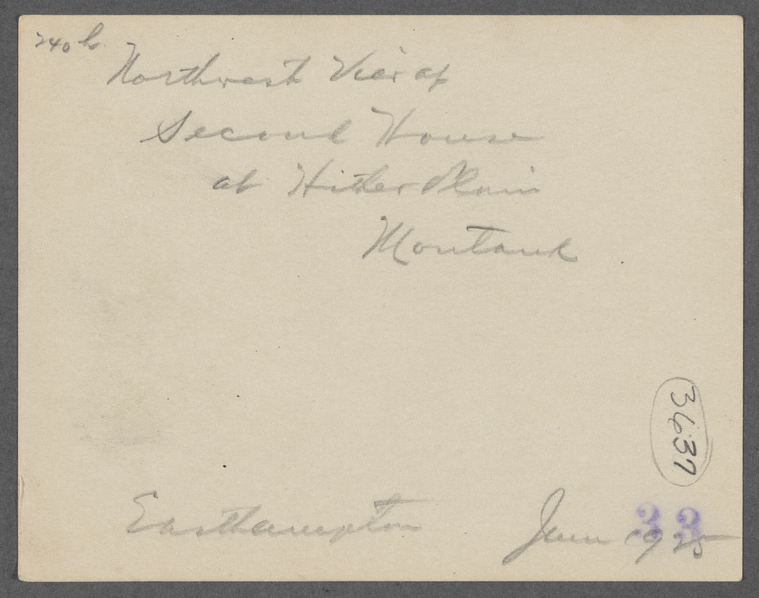 240 h
Northwest View of
Second House
at Hither Plain
Montauk
3637
Easthampton June 1925
33